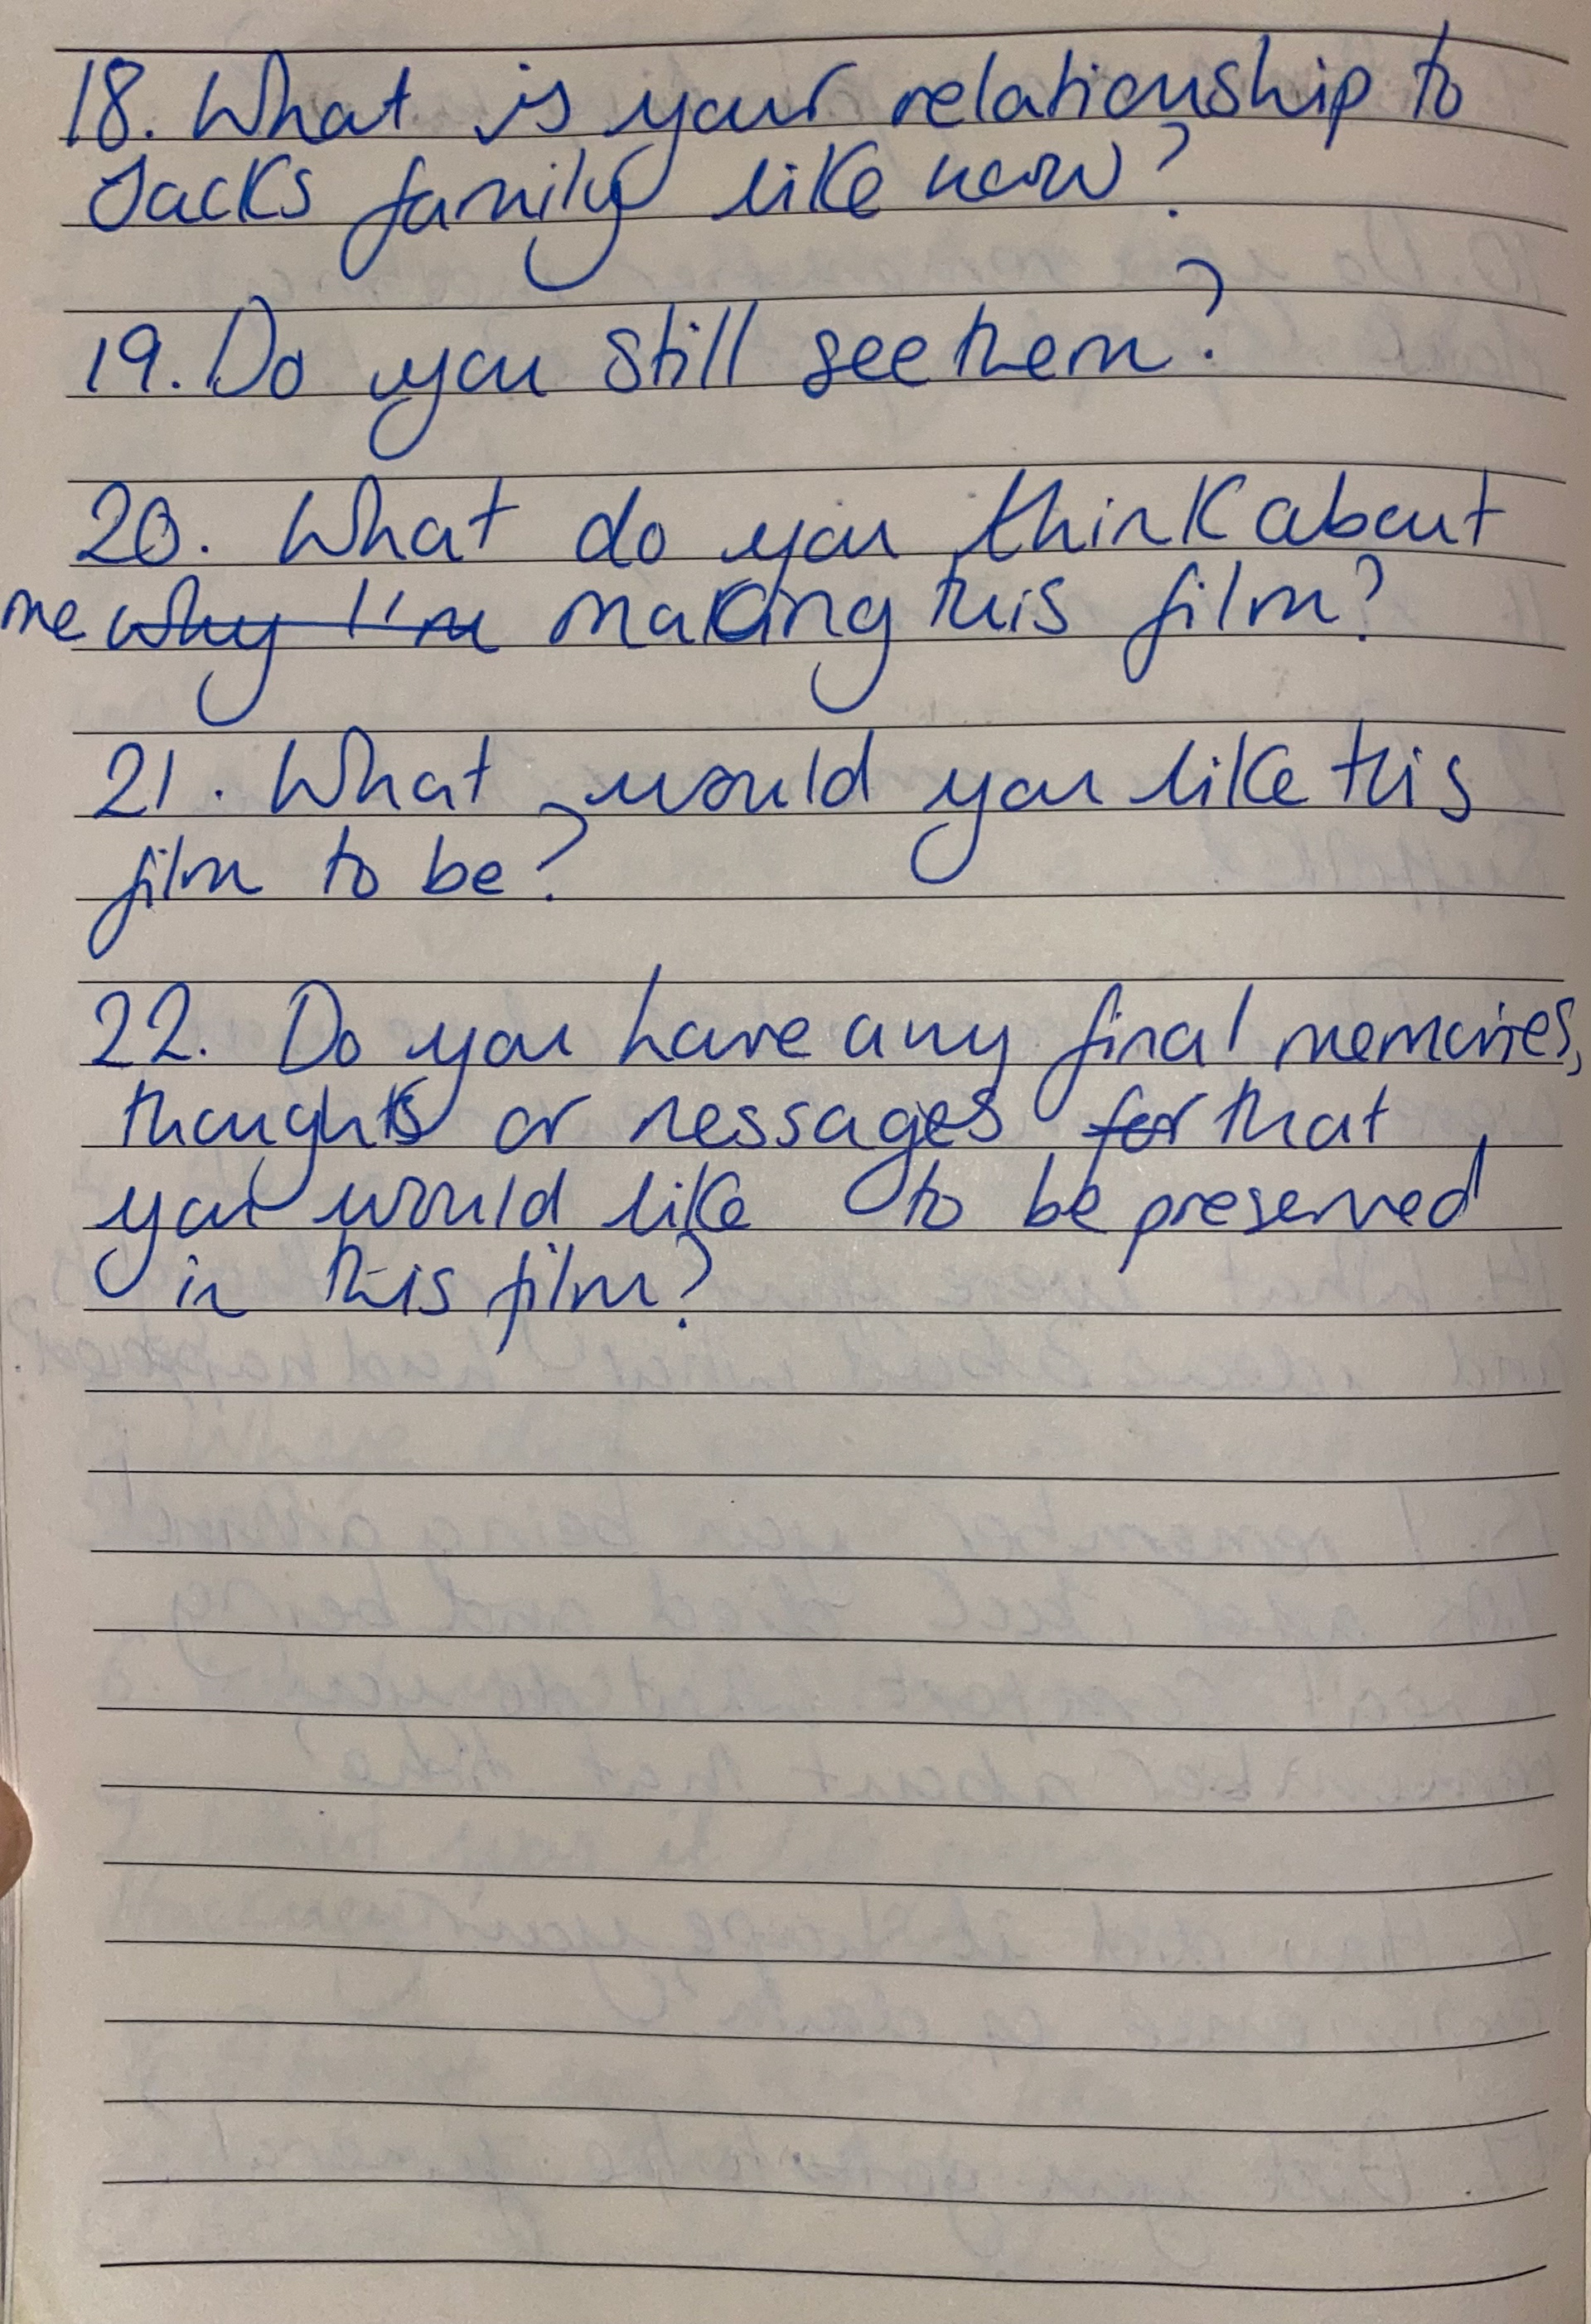 18. What is your relationship to
Jacks family like now?
19. Do you still see them?
20. What do you think about
me why I'm making this film?
21. What would you like this
film to be?
22. Do you have any final memories,
thoughts or messages for that
you would like to be preserved
in this film?